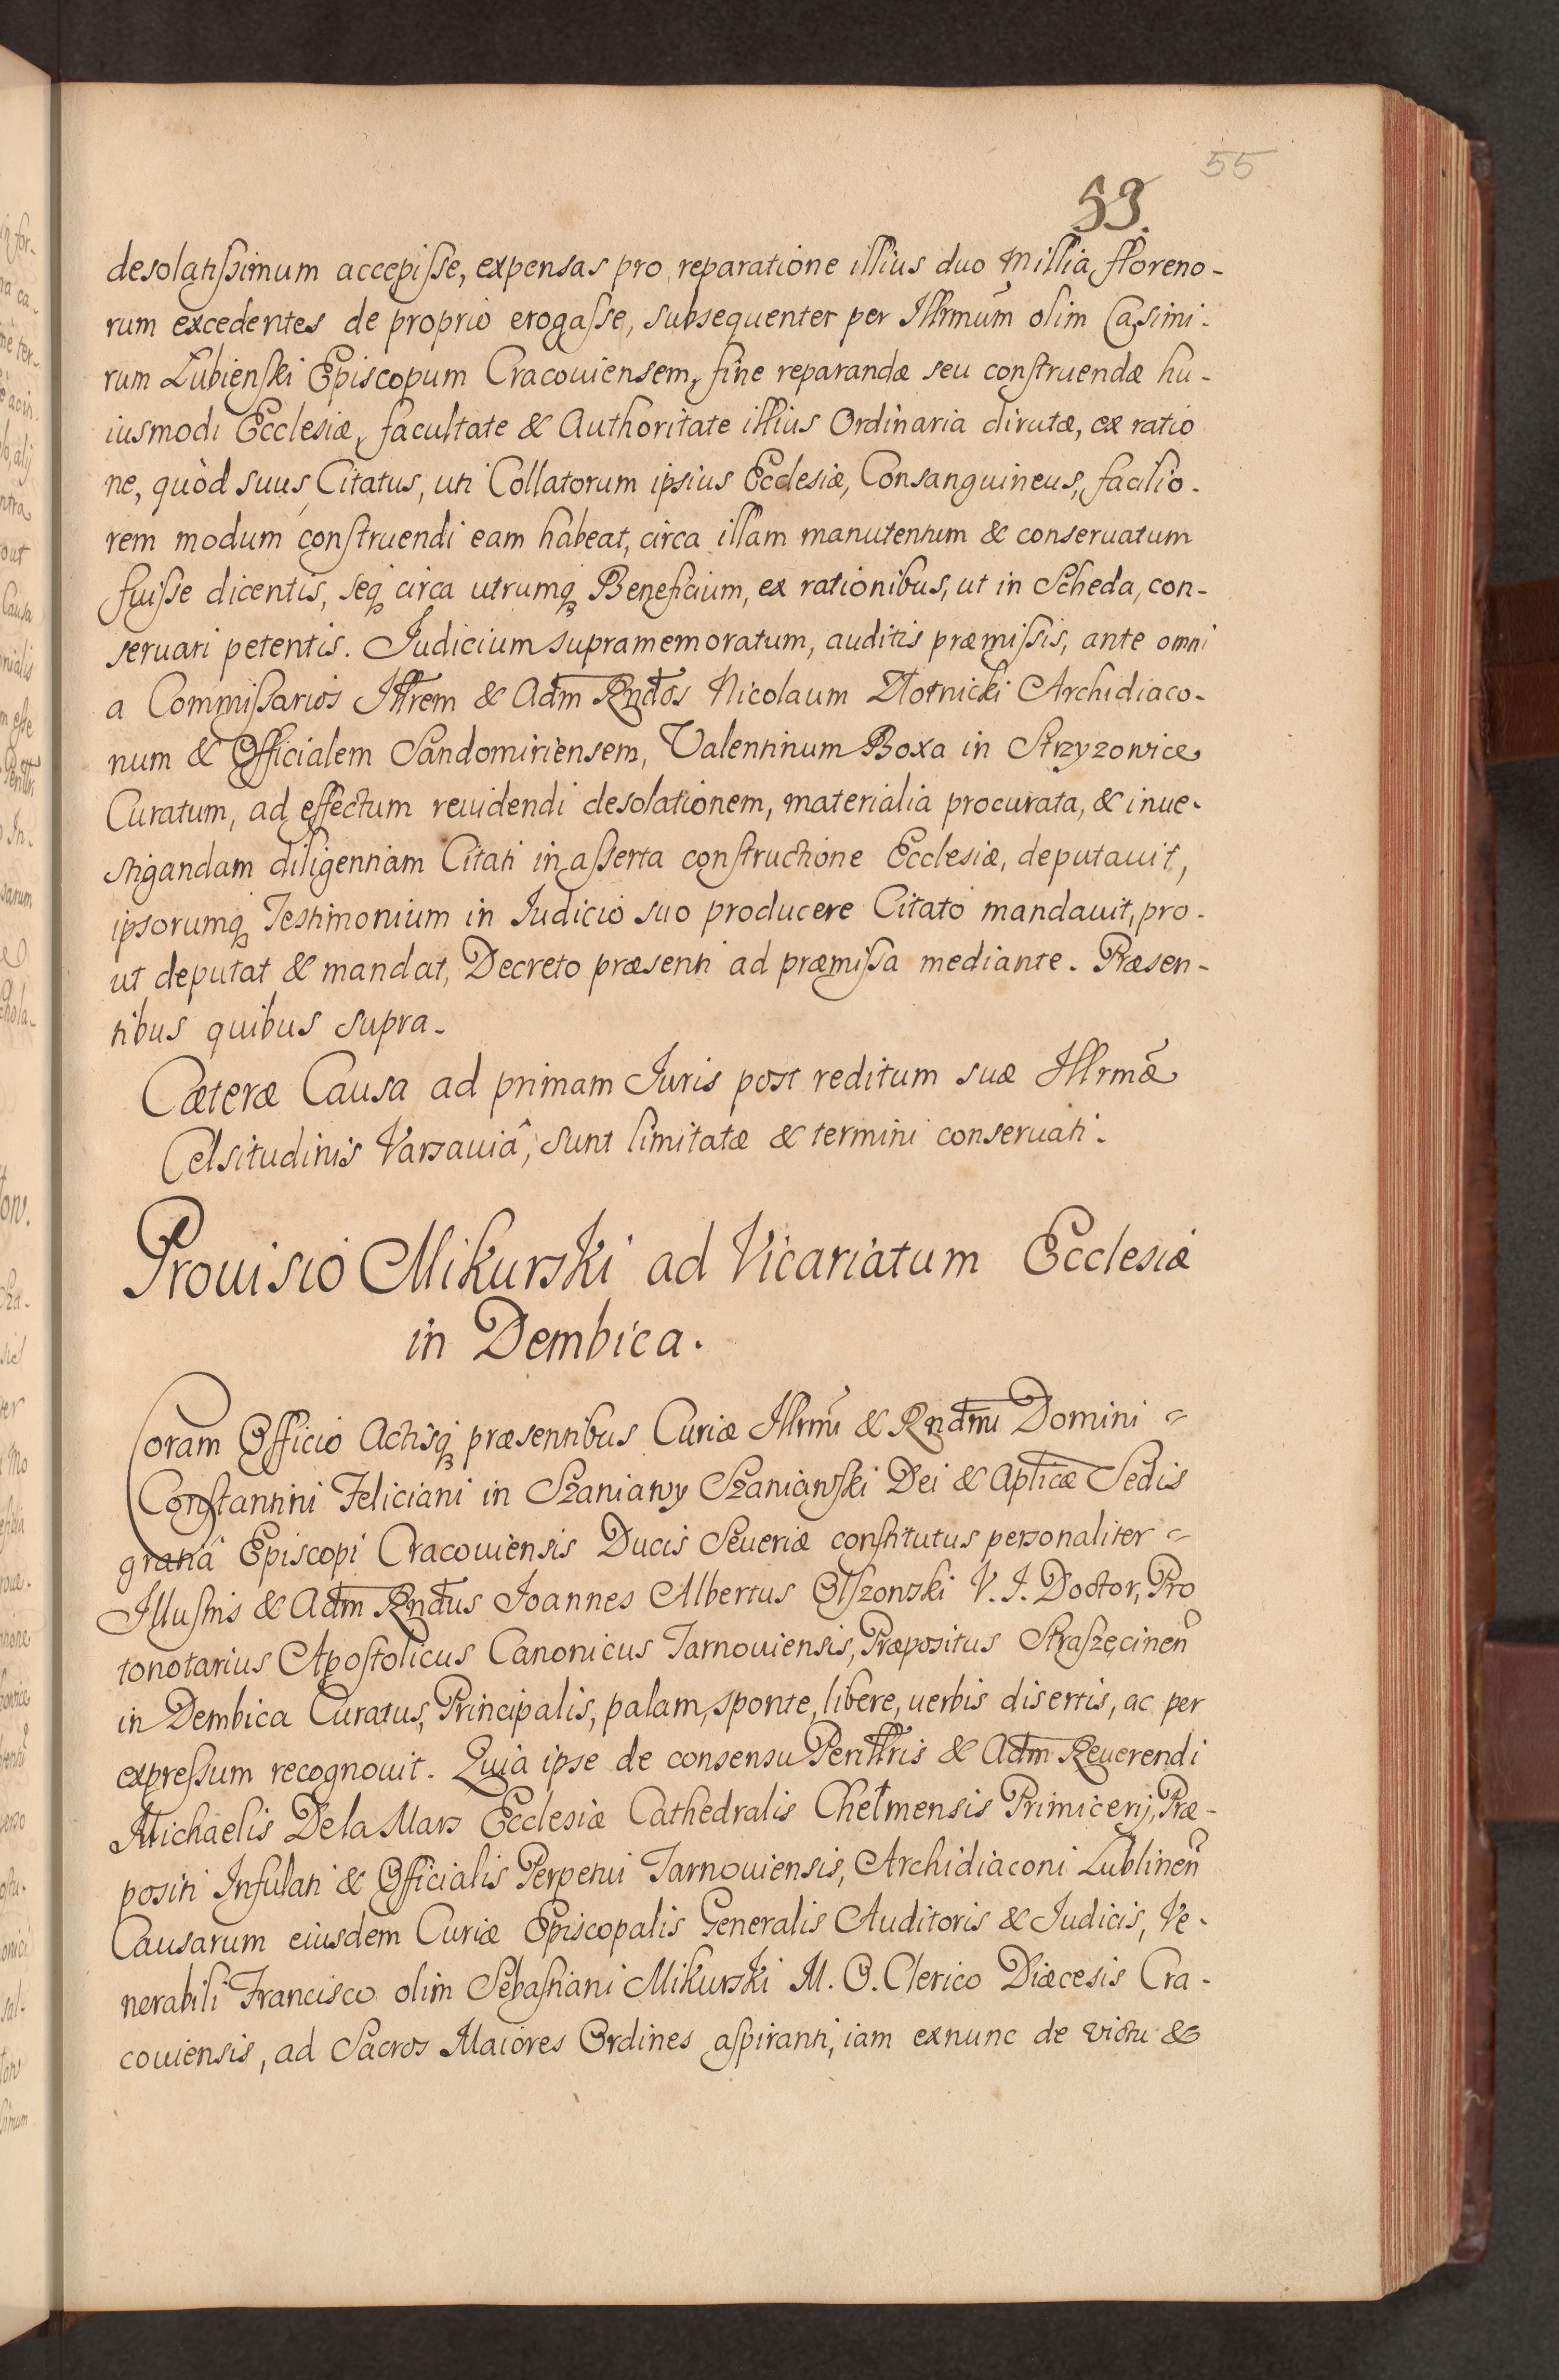 55
53.
desolatissimum accepisse, expensas pro reparatione illius duo Millia floreno-
rum excedentes de proprio erogasse, subsequenter per Illrmum olim Casimi-
rum Lubienski Episcopum Cracouiensem, fine reparandæ seu construendæ hu-
iusmodi Ecclesiæ, facultate & Authoritate illius Ordinaria dirutæ, ex ratio
ne, quòd suus Citatus, uti Collatorum ipsius Ecclesiæ, Consanguineus, facilio-
rem modum construendi eam habeat, circa illam manutentum & conseruatum
fuisse dicentis, seq circa utrumq Beneficium, ex rationibus, ut in Scheda, con-
seruari petentis. Iudicium supramemoratum, auditis præmissis, ante omni
a Commissarios Illrem & Adm Rndos Nicolaum Złotnicki Archidiaco-
num & Officialem Sandomiriensem, Valentinum Boxa in Strzyzowice
Curatum, ad effectum reuidendi desolationem, materialia procurata, & inue-
stigandam diligentiam Citati in asserta constructione Ecclesiæ, deputauit,
ipsorumq Testimonium in Iudicio suo producere Citato mandauit, pro-
ut deputat & mandat, Decreto præsenti ad præmissa mediante. Præsen-
tibus quibus supra.
Cæteræ Causa ad primam Iuris post reditum suæ Illrmæ
Celsitudinis Varsauiâ, sunt limitatæ & termini conseruati.
Prouisio Mikurski ad Vicariatum Ecclesiæ
in Dembica.
Coram Officio Actisq præsentibus Curiæ Illrmi & Rndmi Domini =
Constantini Feliciani in Szaniawy Szaniawski Dei & Aplicæ Sedis
gratiâ Episcopi Cracouiensis Ducis Seueriæ constitutus personaliter =
Illustris & Adm Rndus Ioannes Albertus Olszonski V. I. Doctor, Pro
tonotarius Apostolicus Canonicus Tarnouiensis, Præpositus Straszęcinen
in Dembica Curatus, Principalis, palam, sponte, libere, uerbis disertis, ac per
expressum recognouit. Quia ipse de consensu Perillris & Adm Reuerendi
Michaelis De la Mars Ecclesiæ Cathedralis Chełmensis Primicerij, Præ-
positi Infulati & Officialis Perpetui Tarnouiensis, Archidiaconi Lublinen
Causarum eiusdem Curiæ Episcopalis Generalis Auditoris & Iudicis, Ve-
nerabili Francisco olim Sebastiani Mikurski M. O. Clerico Diæcesis Cra-
couiensis, ad Sacros Maiores Ordines aspiranti, iam exnunc de victu &